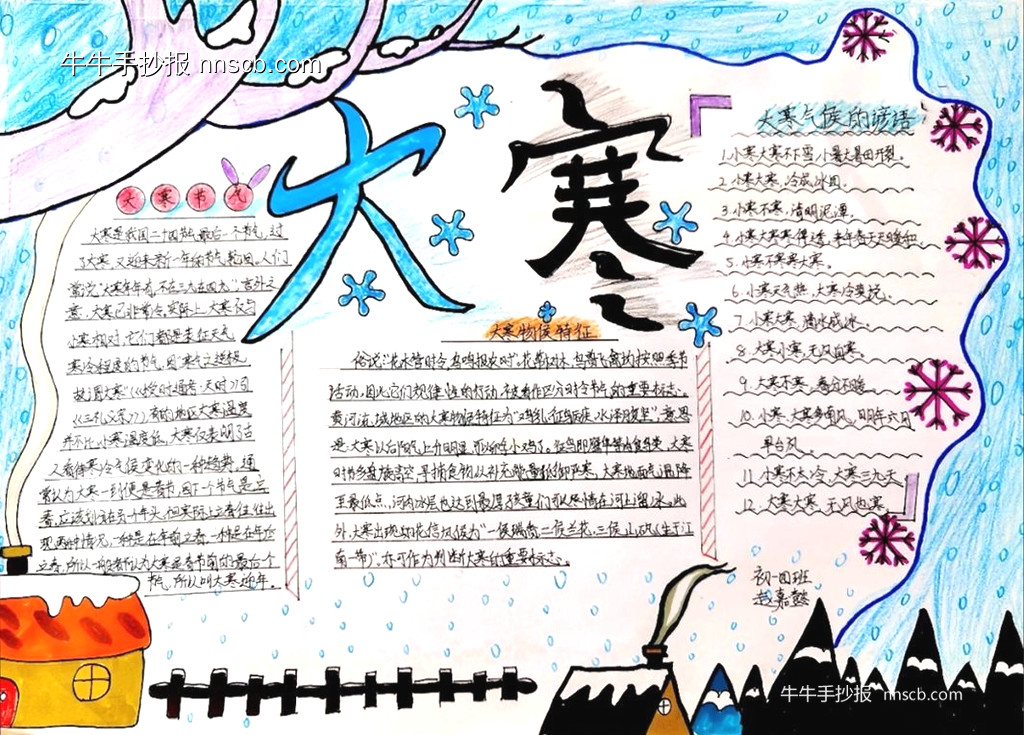 牛牛手抄报 nnscb.com
大寒
大寒节气
大寒是我国二十四节气最后一个节气,过
了大寒,又迎来新一年的节气轮回。人们
常说"大寒年年有,不在三九在四九"。言外之
意,大寒已非常冷,实际上,大寒仅与
小寒相对,它们都是表征天气
寒冷程度的节气,因"寒气之逆极
故谓大寒"《授时通考·天时》引
《三礼义宗》
并不比小寒温度低,大寒仅表明
又看得寒冷气候变化的一种趋势,通
常认为大寒一到便是春节,因下一个节气是立
春,应该划分在另一个年头,但实际上立春往往出
现两种情况,一种是在年前立春,一种是在年后
立春,所以一般都认为大寒是春节前的最后个
节气,所以叫大寒迎年。
大寒物候特征
俗说:花木管时令,鸟鸣报农时。花草树木、鸟兽飞禽均按照季节
活动,因此它们规律性的行动,被看作区分时令节气的重要标志。
黄河流域地区的大寒物候特征为"鸡乳,征鸟厉疾,水泽腹坚",意思
是大寒以后阳气上升明显,
时节盘旋高空,寻捕食物以补充能量抵御严寒,大寒地面气温降
至最低点,河内冰层也达到最厚,孩童们可以尽情在河上溜冰。此
外,大寒出现的花信风候为"一候瑞香,二候兰花,三候山矾(生于江
南一带)",亦可作为判断大寒的重要标志。
大寒气候的谚语
1.小寒大寒不下雪,小暑大暑田开裂。
2.小寒大寒,冷成冰团。
3.小寒不寒,清明泥潭。
4.小寒大寒寒得透,来年春天天暖和。
5.小寒不寒寒大寒。
6.小寒天气热,大寒冷莫说。
7.小寒大寒,滴水成冰。
8.大寒小寒,无风自寒。
9.大寒不寒,春分不暖。
10.小寒、大寒多南风,明年六月
早台风。
11.小寒不太冷,大寒三九天
12.小寒大寒,无风也寒
初一四班
赵嘉懿
牛牛手抄报 nnscb.com